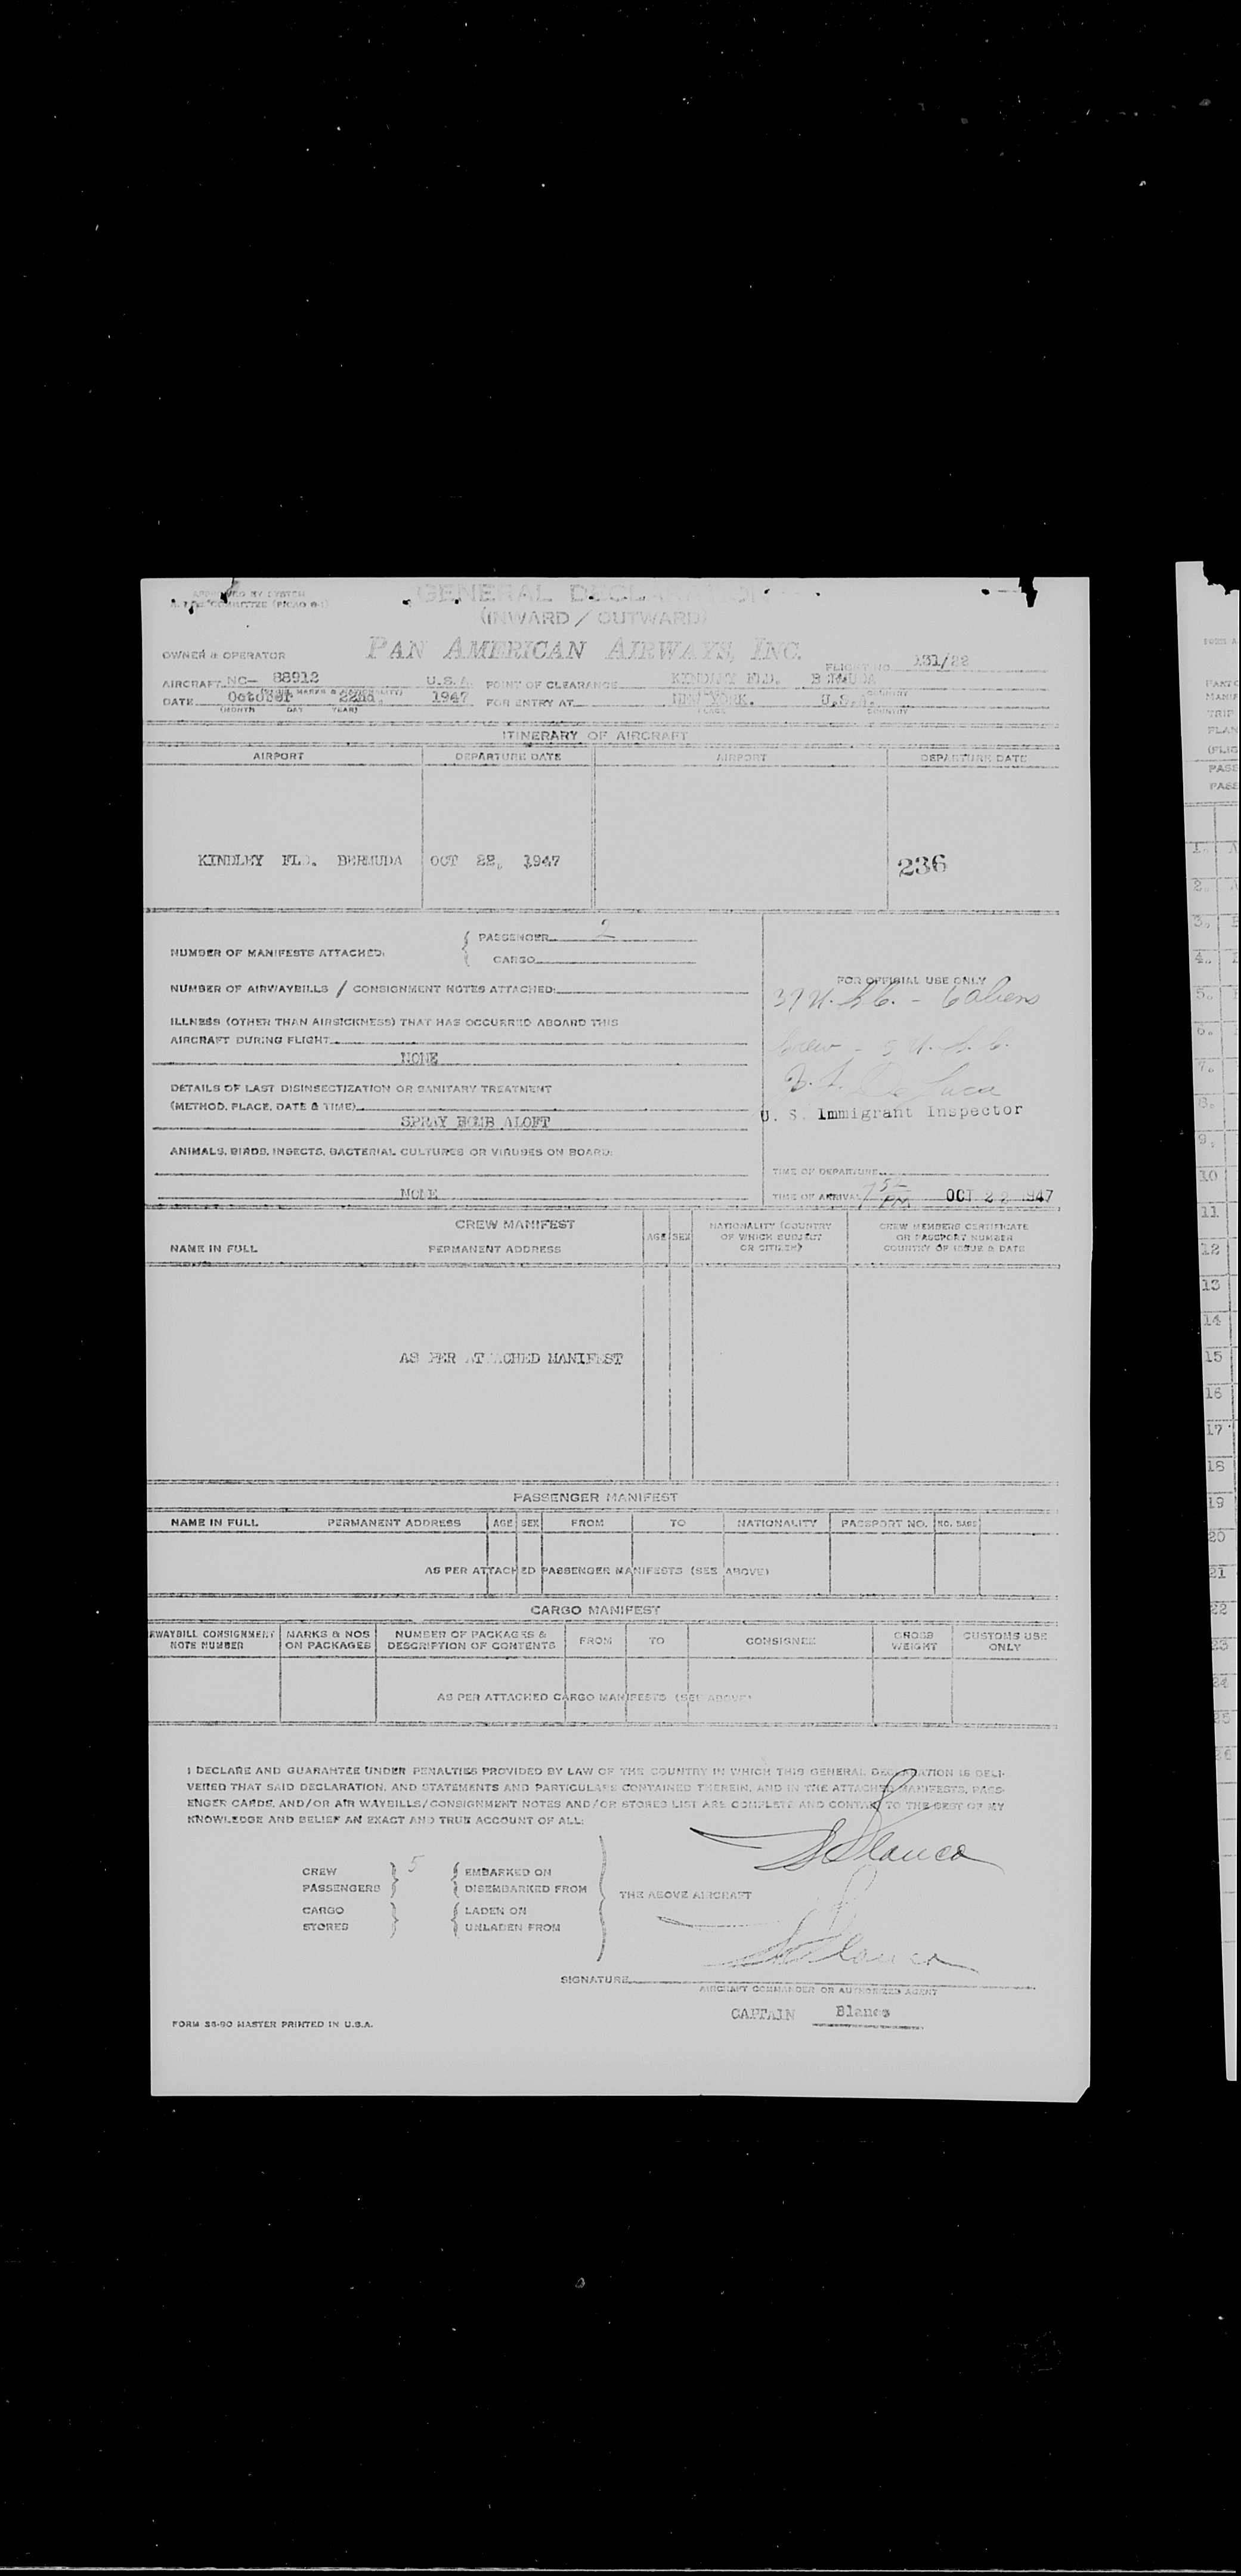 GENERAL DECLARATION
(INWARD / OUTWARD)
OWNER & OPERATOR PAN AMERICAN AIRWAYS, INC.
FLIGHT NO. 131/22
AIRCRAFT NC- 88912 U.S.A. POINT OF CLEARANCE KINDLEY FLD. BERMUDA
DATE October 22nd, 1947 FOR ENTRY AT NEW YORK. U.S.A.
(MONTH DAY YEAR) PLACE COUNTRY
ITINERARY OF AIRCRAFT
AIRPORT DEPARTURE DATE AIRPORT DEPARTURE DATE
KINDLEY FLD. BERMUDA OCT 22, 1947 236
NUMBER OF MANIFESTS ATTACHED: { PASSENGER 2
{ CARGO
NUMBER OF AIRWAYBILLS / CONSIGNMENT NOTES ATTACHED:
ILLNESS (OTHER THAN AIRSICKNESS) THAT HAS OCCURRED ABOARD THIS
AIRCRAFT DURING FLIGHT
NONE
DETAILS OF LAST DISINSECTIZATION OR SANITARY TREATMENT
(METHOD, PLACE, DATE & TIME)
SPRAY BOMB ALOFT
ANIMALS, BIRDS, INSECTS, BACTERIAL CULTURES OR VIRUSES ON BOARD:
NONE
FOR OFFICIAL USE ONLY
37 U.S.C. - 6 aliens
Crew - 5 U.S.C.
U. S. Immigrant Inspector
TIME OF DEPARTURE
TIME OF ARRIVAL PM OCT 22 1947
CREW MANIFEST
NAME IN FULL PERMANENT ADDRESS AGE SEX NATIONALITY (COUNTRY OF WHICH SUBJECT OR CITIZEN) CREW MEMBERS CERTIFICATE OR PASSPORT NUMBER COUNTRY OF ISSUE & DATE
AS PER ATTACHED MANIFEST
PASSENGER MANIFEST
NAME IN FULL PERMANENT ADDRESS AGE SEX FROM TO NATIONALITY PASSPORT NO. NO. BAGS
AS PER ATTACHED PASSENGER MANIFESTS (SEE ABOVE)
CARGO MANIFEST
AIRWAYBILL CONSIGNMENT NOTE NUMBER MARKS & NOS ON PACKAGES NUMBER OF PACKAGES & DESCRIPTION OF CONTENTS FROM TO CONSIGNEE GROSS WEIGHT CUSTOMS USE ONLY
AS PER ATTACHED CARGO MANIFESTS (SEE ABOVE)
I DECLARE AND GUARANTEE UNDER PENALTIES PROVIDED BY LAW OF THE COUNTRY IN WHICH THIS GENERAL DECLARATION IS DELI-
VERED THAT SAID DECLARATION, AND STATEMENTS AND PARTICULARS CONTAINED THEREIN, AND IN THE ATTACHED MANIFESTS, PASS-
ENGER CARDS, AND/OR AIR WAYBILLS/CONSIGNMENT NOTES AND/OR STORES LIST ARE COMPLETE AND CONTAIN TO THE BEST OF MY
KNOWLEDGE AND BELIEF AN EXACT AND TRUE ACCOUNT OF ALL:
Blanco
CREW 5 EMBARKED ON
PASSENGERS DISEMBARKED FROM
THE ABOVE AIRCRAFT
CARGO LADEN ON
STORES UNLADEN FROM
Blanco
SIGNATURE
AIRCRAFT COMMANDER OR AUTHORIZED AGENT
CAPTAIN Blanco
FORM 36-90 MASTER PRINTED IN U.S.A.